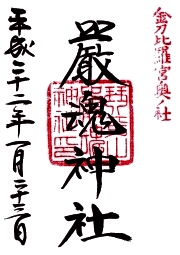 金刀比羅宮奥ノ社
嚴魂神社
平成二十二年一月二十三日